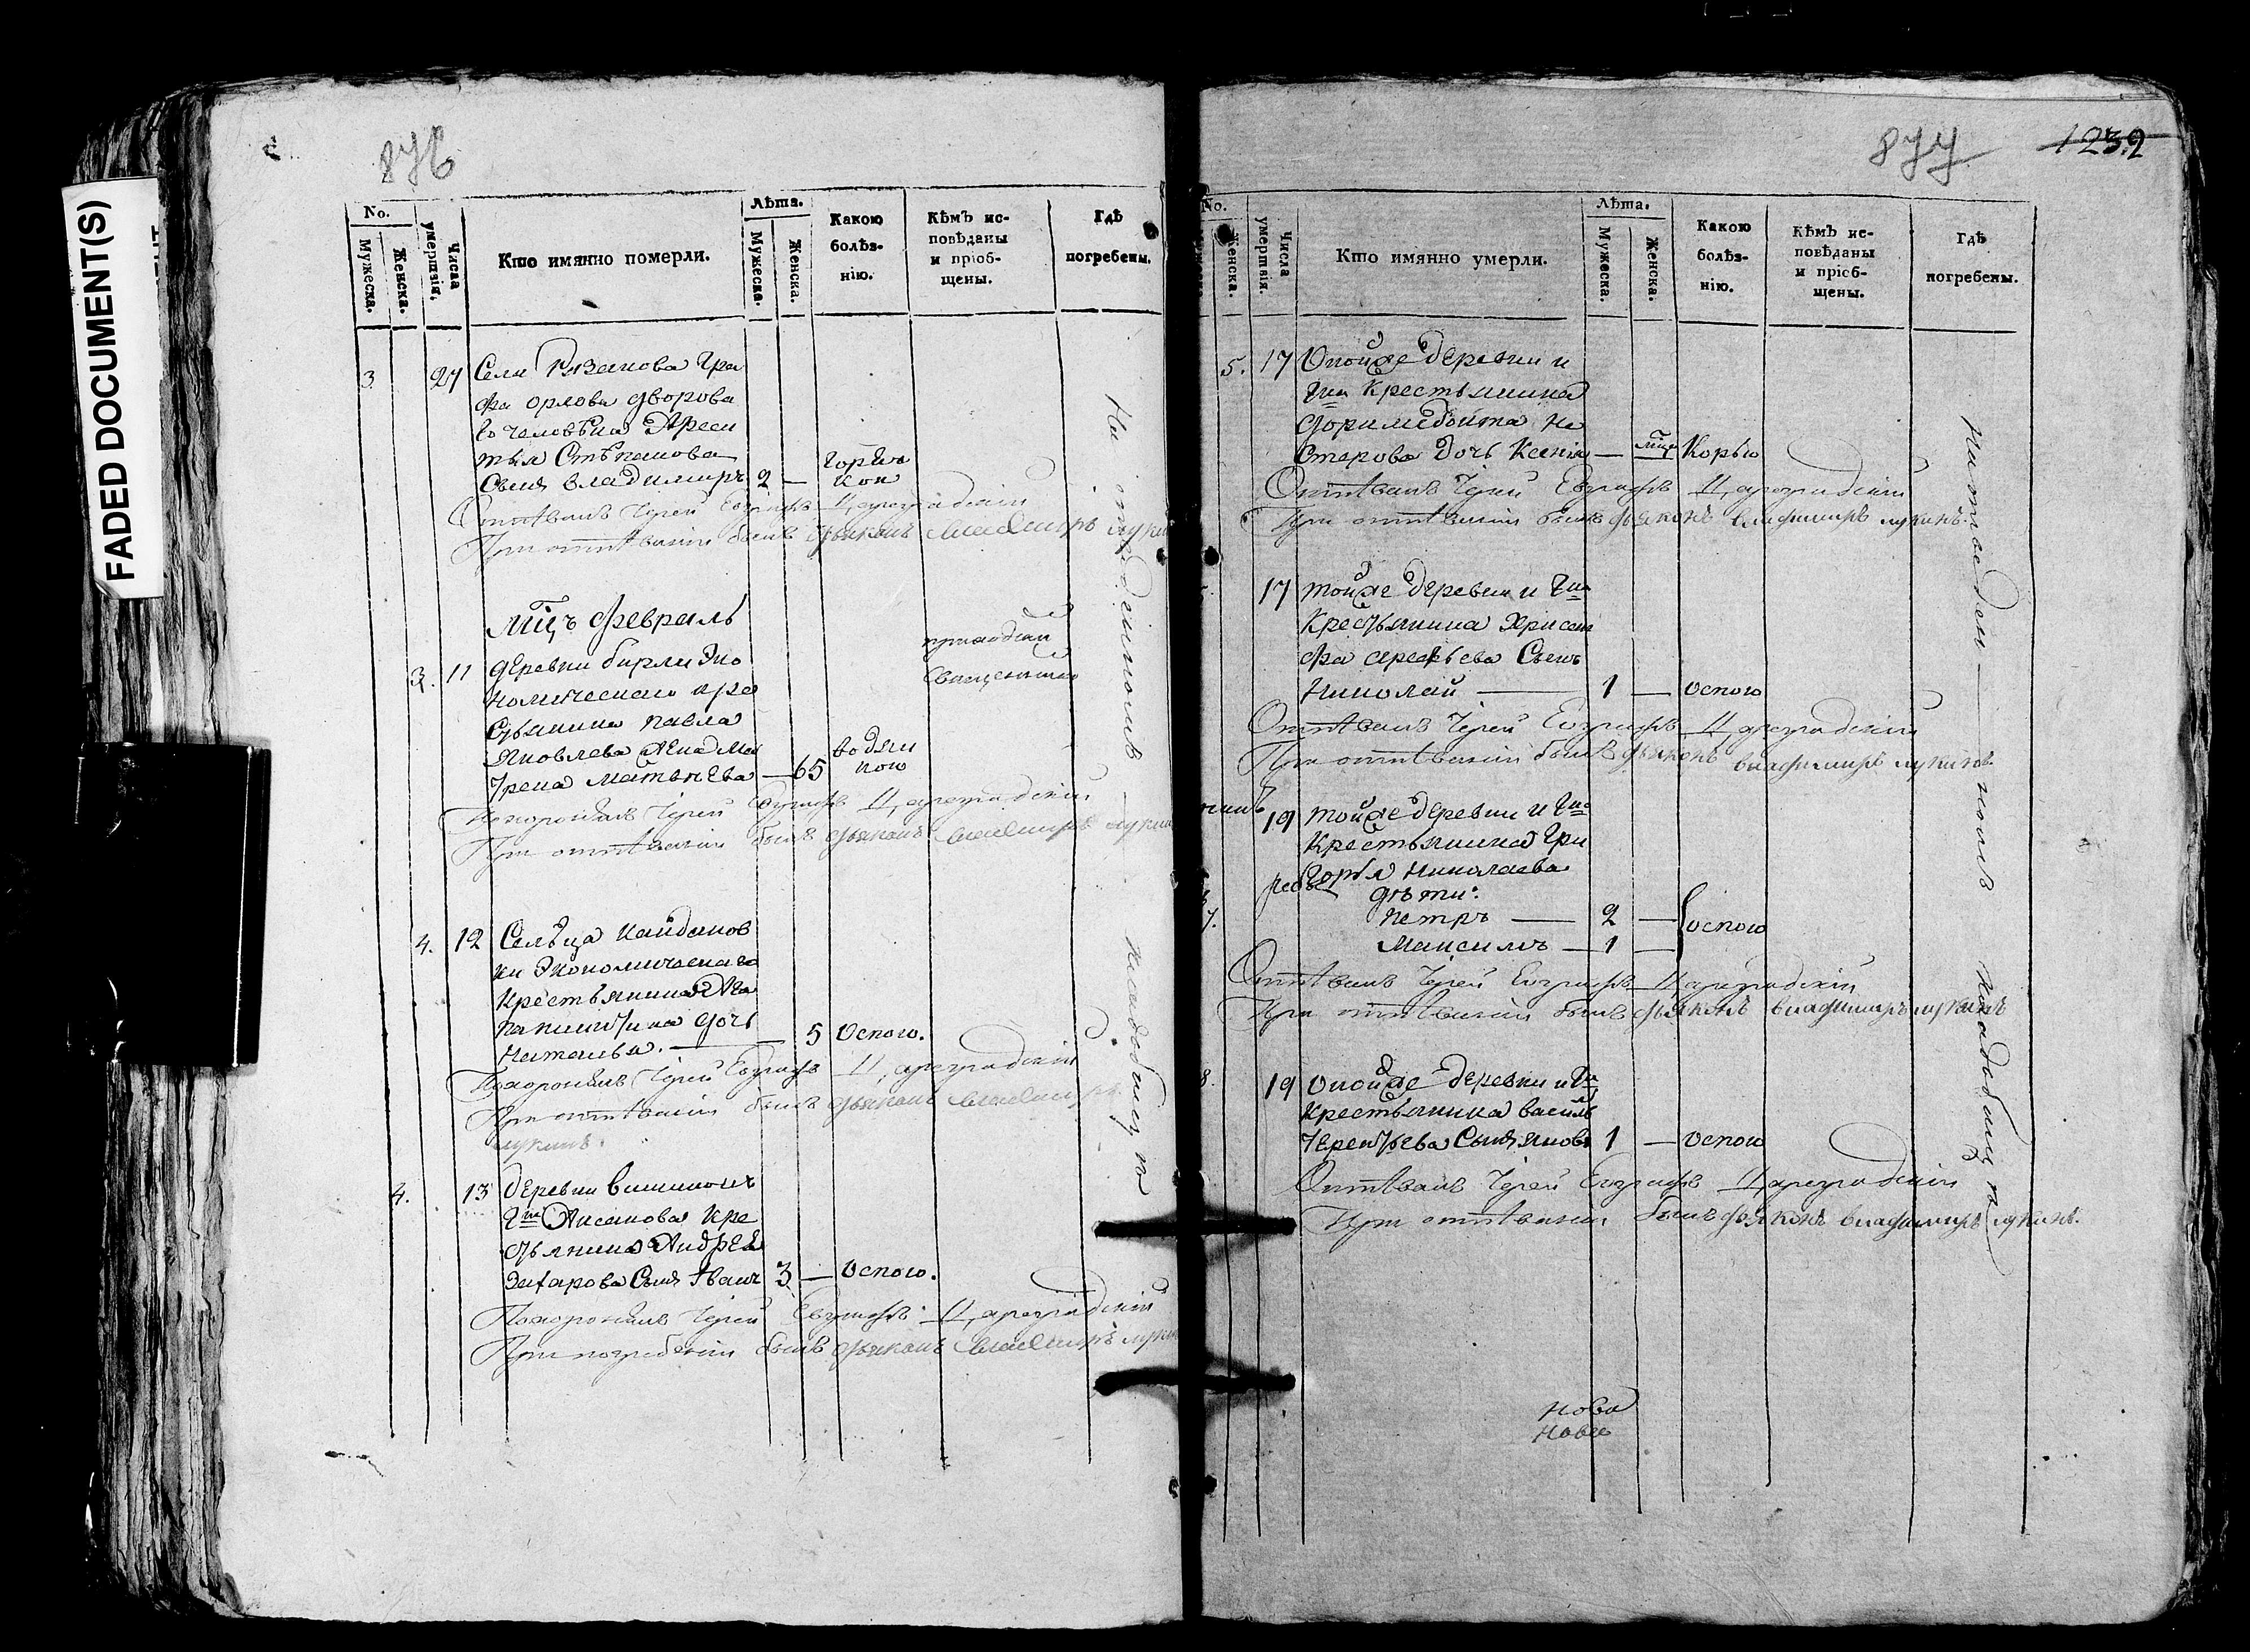 FADED DOCUMENT(S)
876
No.
Мужеска.
Женска.
Числа умертвія.
Кто имянно померли.
Лѣта.
Мужеска.
Женска.
Какою болѣз-
нію.
Кѣмъ ис-
повѣданы
и пріоб-
щены.
Гдѣ
погребены.
3 27 Села Рязанова Гра
фа Орлова дворова
го человѣка
Степанова
Сынъ Владимиръ 2 — Горяч
кою
Отпѣвалъ Іерей Евграфъ Цареградскій
При отпѣваніи былъ дьяконъ Владимиръ Луки
Мцъ февраль
3. 11 деревни бирли Эко
номическаго кре
стьянина Павла
Яковлева жена Ма
трена Матвѣева — 65 водян
ною
приходскій
священникъ
Похоронилъ Іерей Евграфъ Цареградскій
При отпѣваніи былъ дьяконъ Владимиръ Луки
4. 12 Сельца Кайданов
ки Экономическаго
Крестьянина
дочь
Наталья. — 5 Оспою.
Похоронилъ Іерей Евграфъ Цареградскій
При отпѣваніи былъ дьяконъ Владимиръ
Лукинъ.
4. 13 деревни
Гна Аксакова Кре
стьянина Андрея
Захарова Сынъ Иванъ 3 — Оспою.
Похоронилъ Іерей Евграфъ Цареградскій
При погребеніи былъ дьяконъ Владимиръ Луки
На отведенномъ — кладбищѣ
877 1232
No.
Женска.
Числа умертвія.
Кто имянно умерли.
Лѣта.
Мужеска.
Женска.
Какою
болѣз-
нію.
Кѣмъ ис-
повѣданы
и пріоб-
щены.
Гдѣ
погребены.
5. 17 Оной же деревни и
Гна Крестьянина
Доримедонта Не
стерова дочь Ксенія — Корью
Отпѣвалъ Іерей Евграфъ Цареградскій
При отпѣваніи былъ дьяконъ Владимиръ Лукинъ.
17 той же деревни и Гна
Крестьянина Хрисан
фа Арефьева Сынъ
Николай — 1 — Оспою
Отпѣвалъ Іерей Евграфъ Цареградскій
При отпѣваніи былъ дьяконъ Владимиръ Лукинъ.
19 той же деревни и Гна
Крестьянина Гри
горья Николаева
дѣти:
7. Петръ — 2 — оспою
Максимъ — 1 —
Отпѣвалъ Іерей Евграфъ Цареградскій
При отпѣваніи былъ дьяконъ Владимиръ Лукинъ
8. 19 Оной же деревни и Гна
Крестьянина Василья
Терентьева Сынъ Яковъ 1 — Оспою
Отпѣвалъ Іерей Евграфъ Цареградскій
При отпѣваніи былъ дьяконъ Владимиръ Лукинъ.
На отведен — номъ кладбищѣ
Нова
Нове